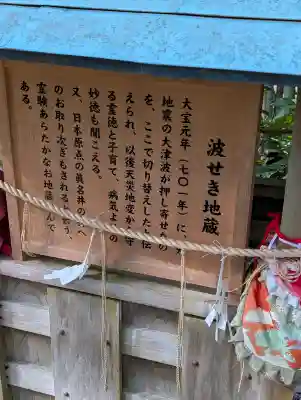 波せき地蔵
大宝元年(七〇一年)に、大
地震の大津波が押し寄せたの
を、ここで切り替えしたと伝
えられ、以後天災地変から守
る霊徳と子育て、病気よ の
妙徳も聞こえる。
又、日本原点の眞名井の
のお取り次ぎもされると謂う。
霊験あらたかなお地 んで
ある。